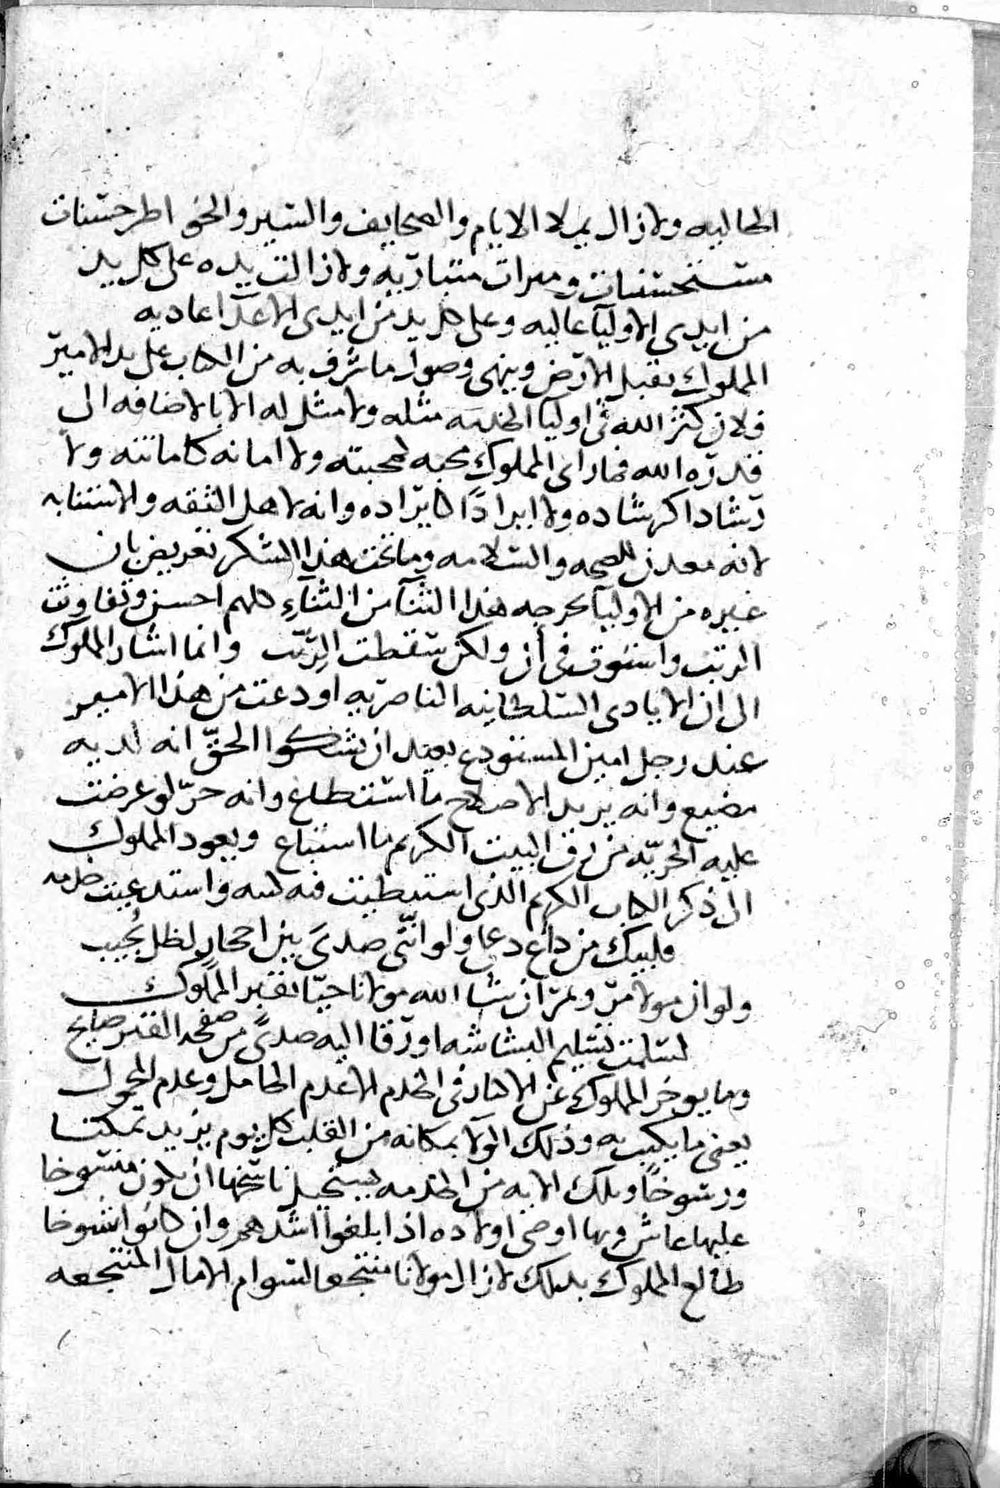 الحاليه ولا زال يملا الايام والصحايف والسير والخواطر حسنات
مستحسنات ومبرات متباريه ولا زالت يده على كل يد
من ايدي الاوليآ عاليه وعلى كل يد من ايدي الاعدآ عاديه
المملوك يقبل الارض وينهى وصول ما شرف به من الكتاب على يد الامير
فلان كثر الله في اوليآ الخدمه مثله ولا مثل له الا بالاضافه الى
قدره الله فما راى المملوك محبه كمحبته ولا امانه كامانته ولا
رشادا كرشاده ولا ايرادًا كايراده وانه لاهل الثقه والاستنابه
لانه معدن للصحه والسلامه وما تحت هذا الشكر تعريض بان
غيره من الاوليآ يخرجه هذا الثنآ من الثنآء كلهم احسن وتفاوتت
الرتب واستوت في أن ولكن سقطت الرتب وانما اشار المملوك
الى ان الايادي السلطانيه الناصريه اودعت من هذا الامير
عند رجل امين المستودع بعيد ان يشكوا الحقّ انه لديه
مضيع وانه يريد الاصلاح ما استطاع وانه حرّ لو عرضت
عليه الحريّه من رق البيت الكريم ما استباع ويعود المملوك
الى ذكر الكتاب الكريم الذي استبطيت فيه كتبه واستدعيت خدمه
فلبيك من داع دعا ولو انّني صدىً بين احجار لظل يجيب
ولو ان مولانا مرّ ويمرّ ان شا الله مولانا حيّا بقبر المملوك
لسلمت تسليم البشاشه او زقا اليه صدىً من صفحه القبر صايح
وما يوخر المملوك عن الاكثار في الخدم الا عدم الحامل وعدم المحمول
يعني ما يكتب به وذلك الولآ بمكانه من القلب كل يوم يزيد تمكنا
ورسوخًا وتلك الايه من الخدمه يستحيل ناسخها ان يكون منسوخا
عليها عاش وبها اوصى اولاده اذا بلغوا اشدهم وان كانوا شيوخا
طالع المملوك بذلك لا زال مولانا منتجعا لسوام الامال المنتجعه